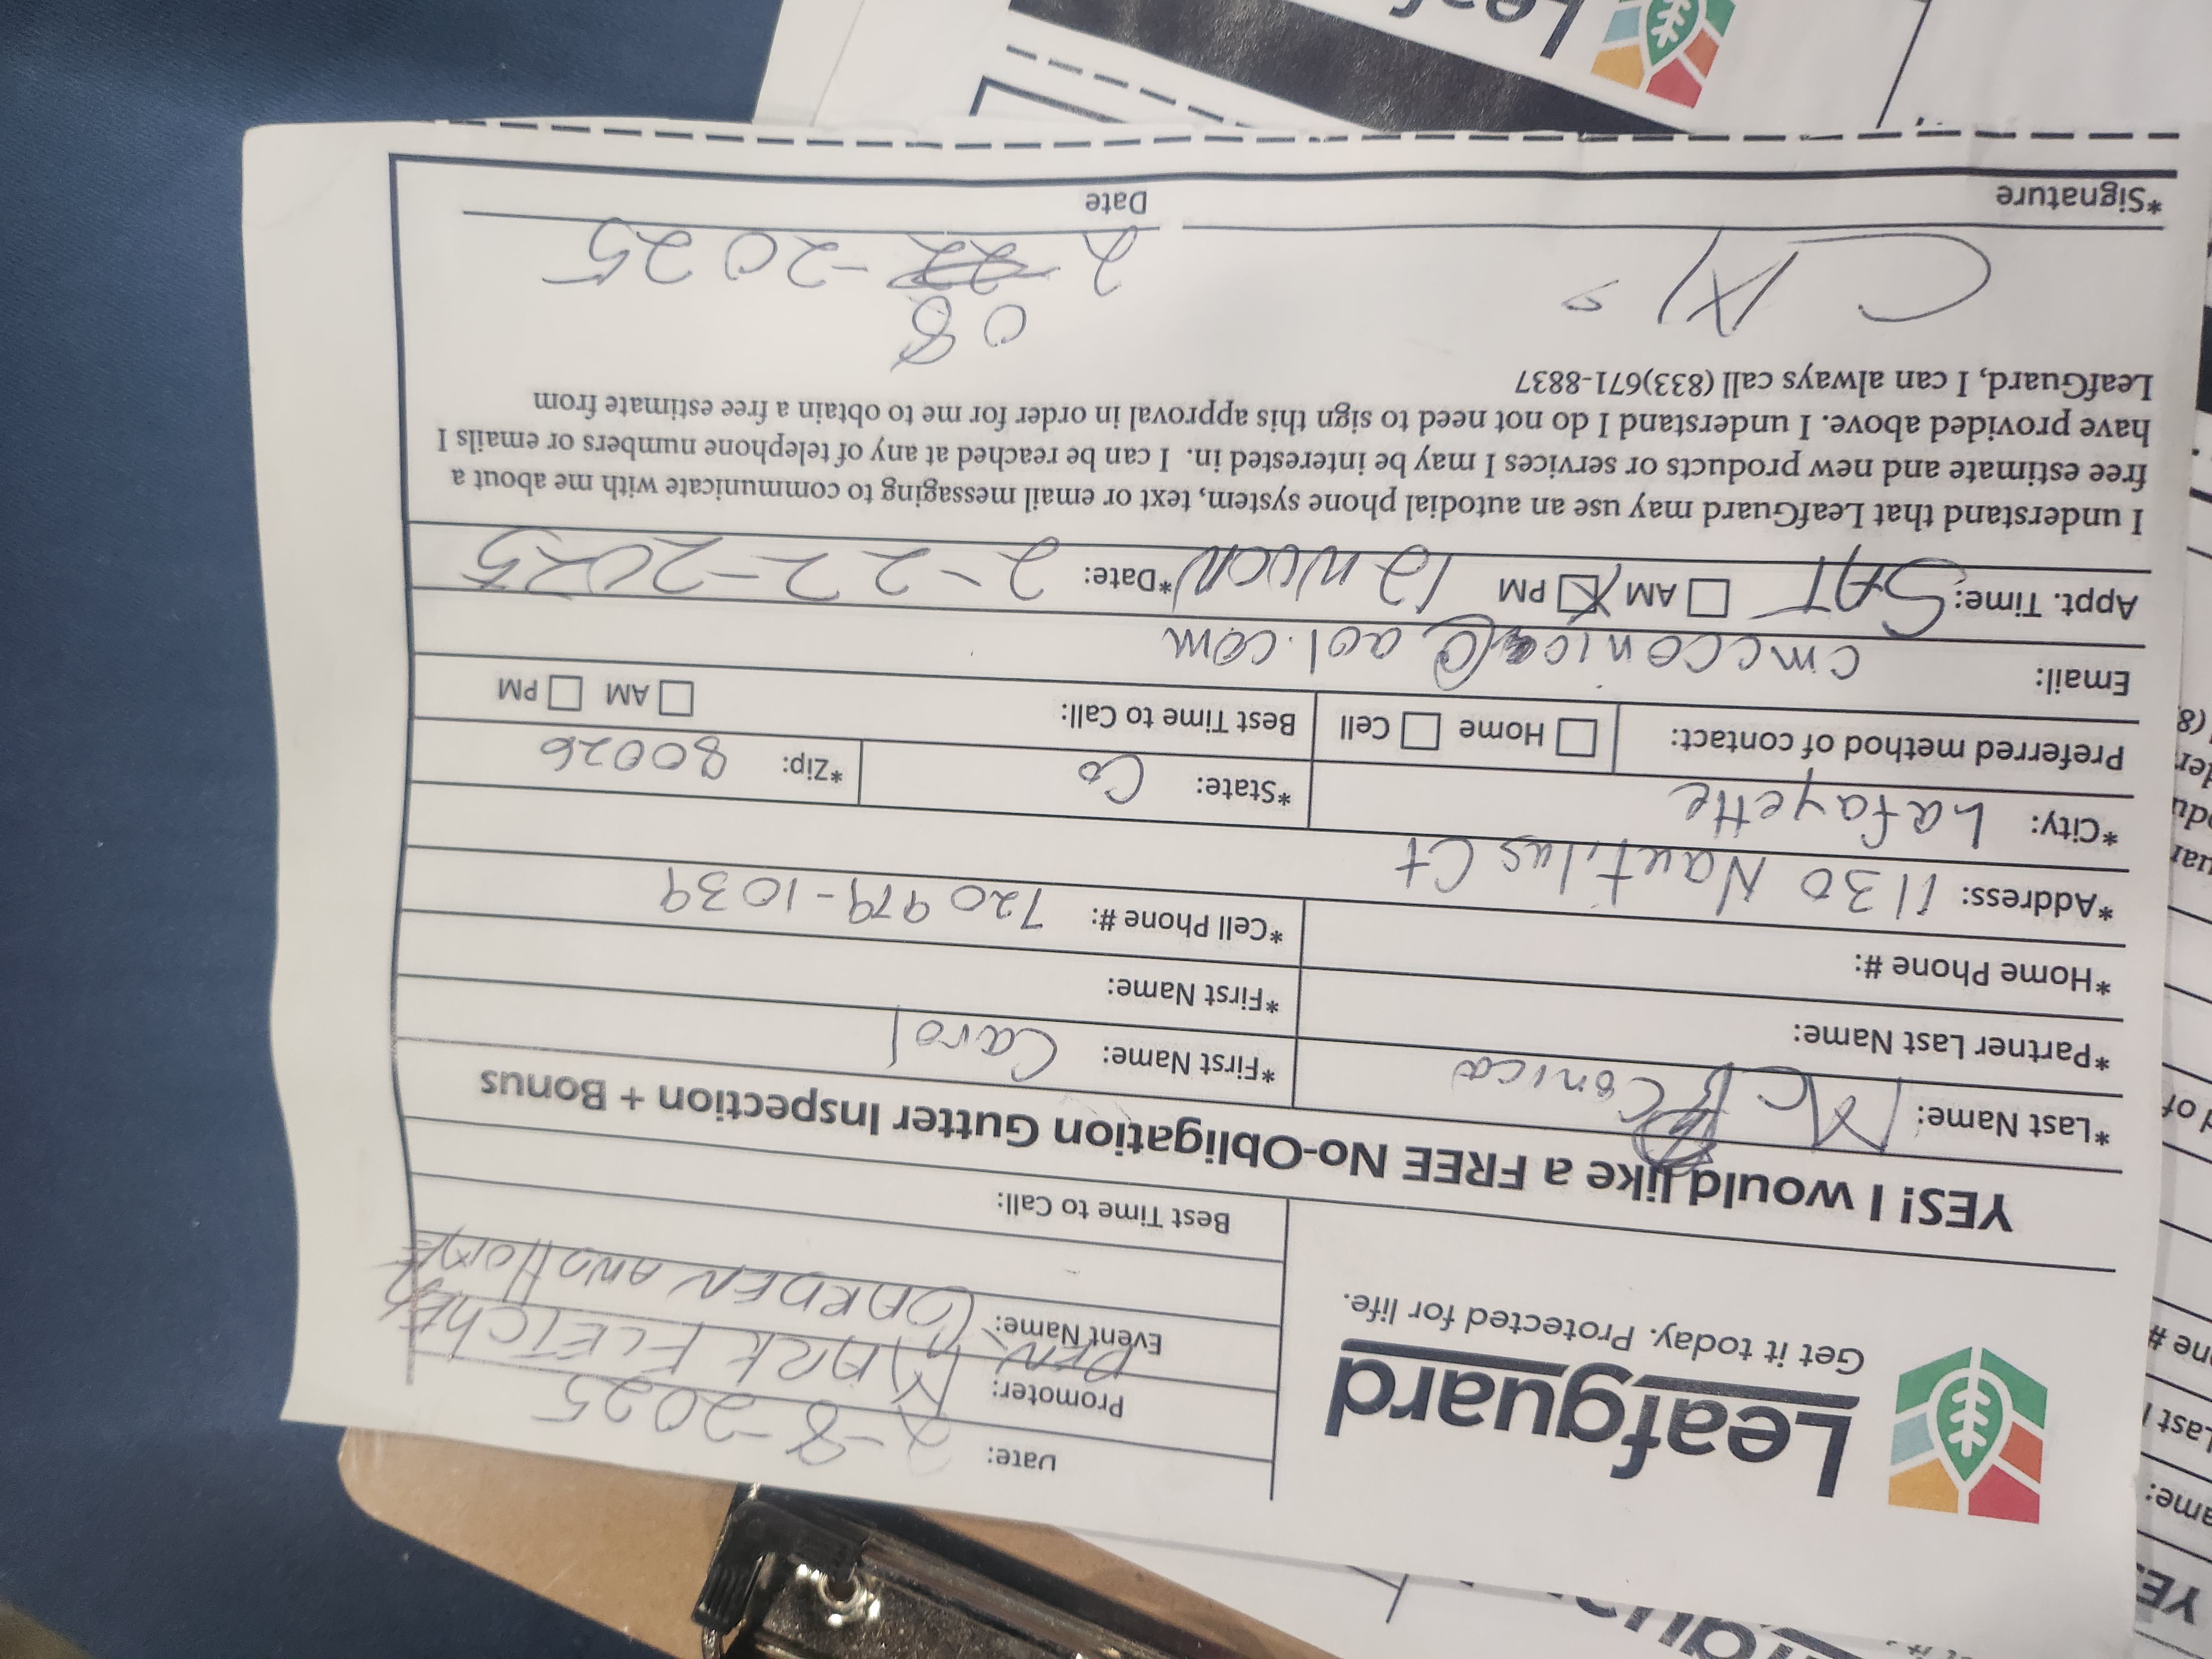 Leafguard
Get it today. Protected for life.
Date: 2-8-2025
Promoter: MARK FLETCHER
Event Name: DEN GARDEN AND HOME
Best Time to Call:
YES! I would like a FREE No-Obligation Gutter Inspection + Bonus
*Last Name: McConica *First Name: Carol
*Partner Last Name: *First Name:
*Home Phone #: *Cell Phone #: 720 979-1039
*Address: 1130 Nautilus Ct
*City: Lafayette *State: Co *Zip: 80026
Preferred method of contact: Home Cell Best Time to Call: AM PM
Email: cmcconica@aol.com
Appt. Time: SAT AM X PM 12 NOON *Date: 2-22-2025
I understand that LeafGuard may use an autodial phone system, text or email messaging to communicate with me about a
free estimate and new products or services I may be interested in. I can be reached at any of telephone numbers or emails I
have provided above. I understand I do not need to sign this approval in order for me to obtain a free estimate from
LeafGuard, I can always call (833)671-8837
2-08-2025
*Signature Date